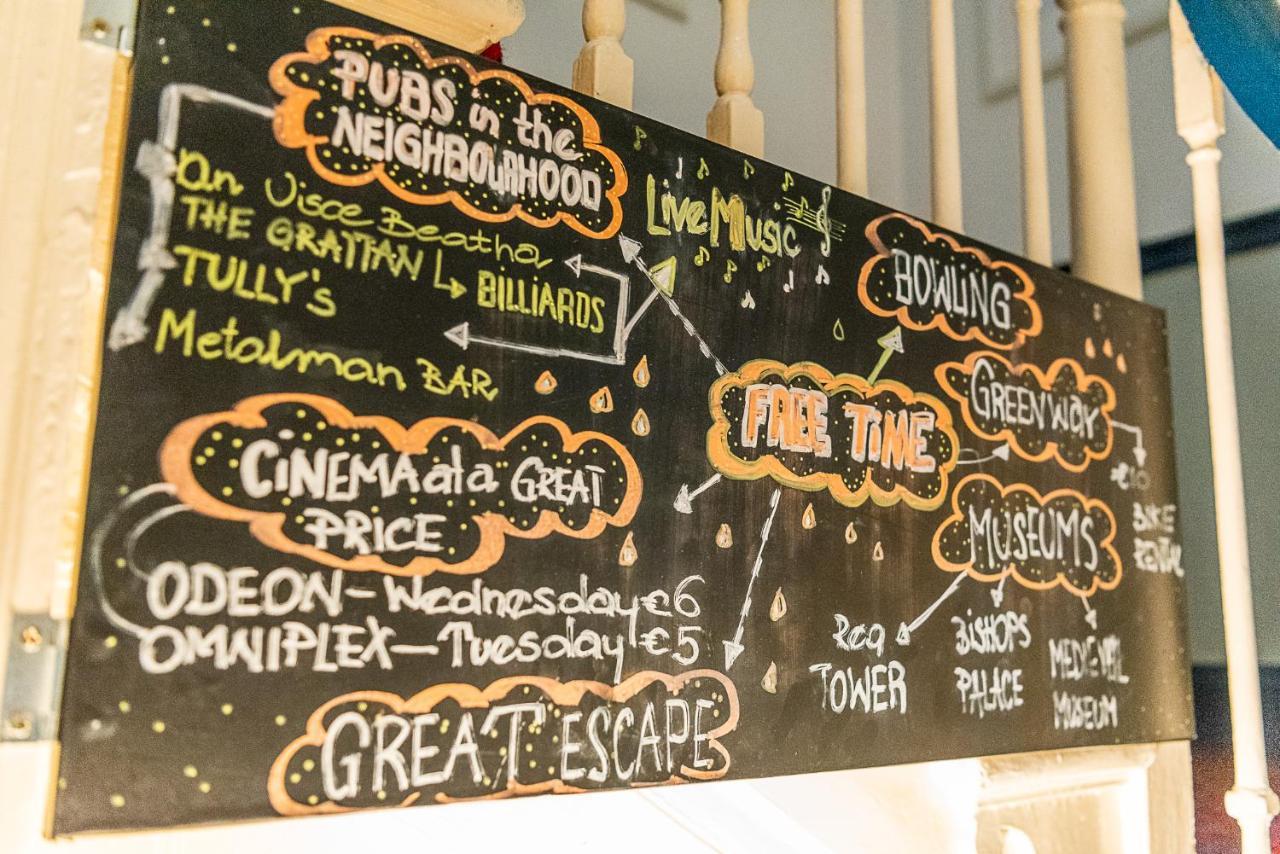 PUBS in the
NEIGHBOURHOOD
An Uisce Beatha
THE GRATTAN
BILLIARDS
TULLY's
Metalman BAR
Live Music
BOWLING
FREE TIME
GREENWAY
€10
BIKE
RENTAL
CINEMA at a GREAT
PRICE
ODEON - Wednesday €6
OMNIPLEX - Tuesday €5
MUSEUMS
Reg
TOWER
BISHOPS
PALACE
MEDIEVEL
MUSEUM
GREAT ESCAPE